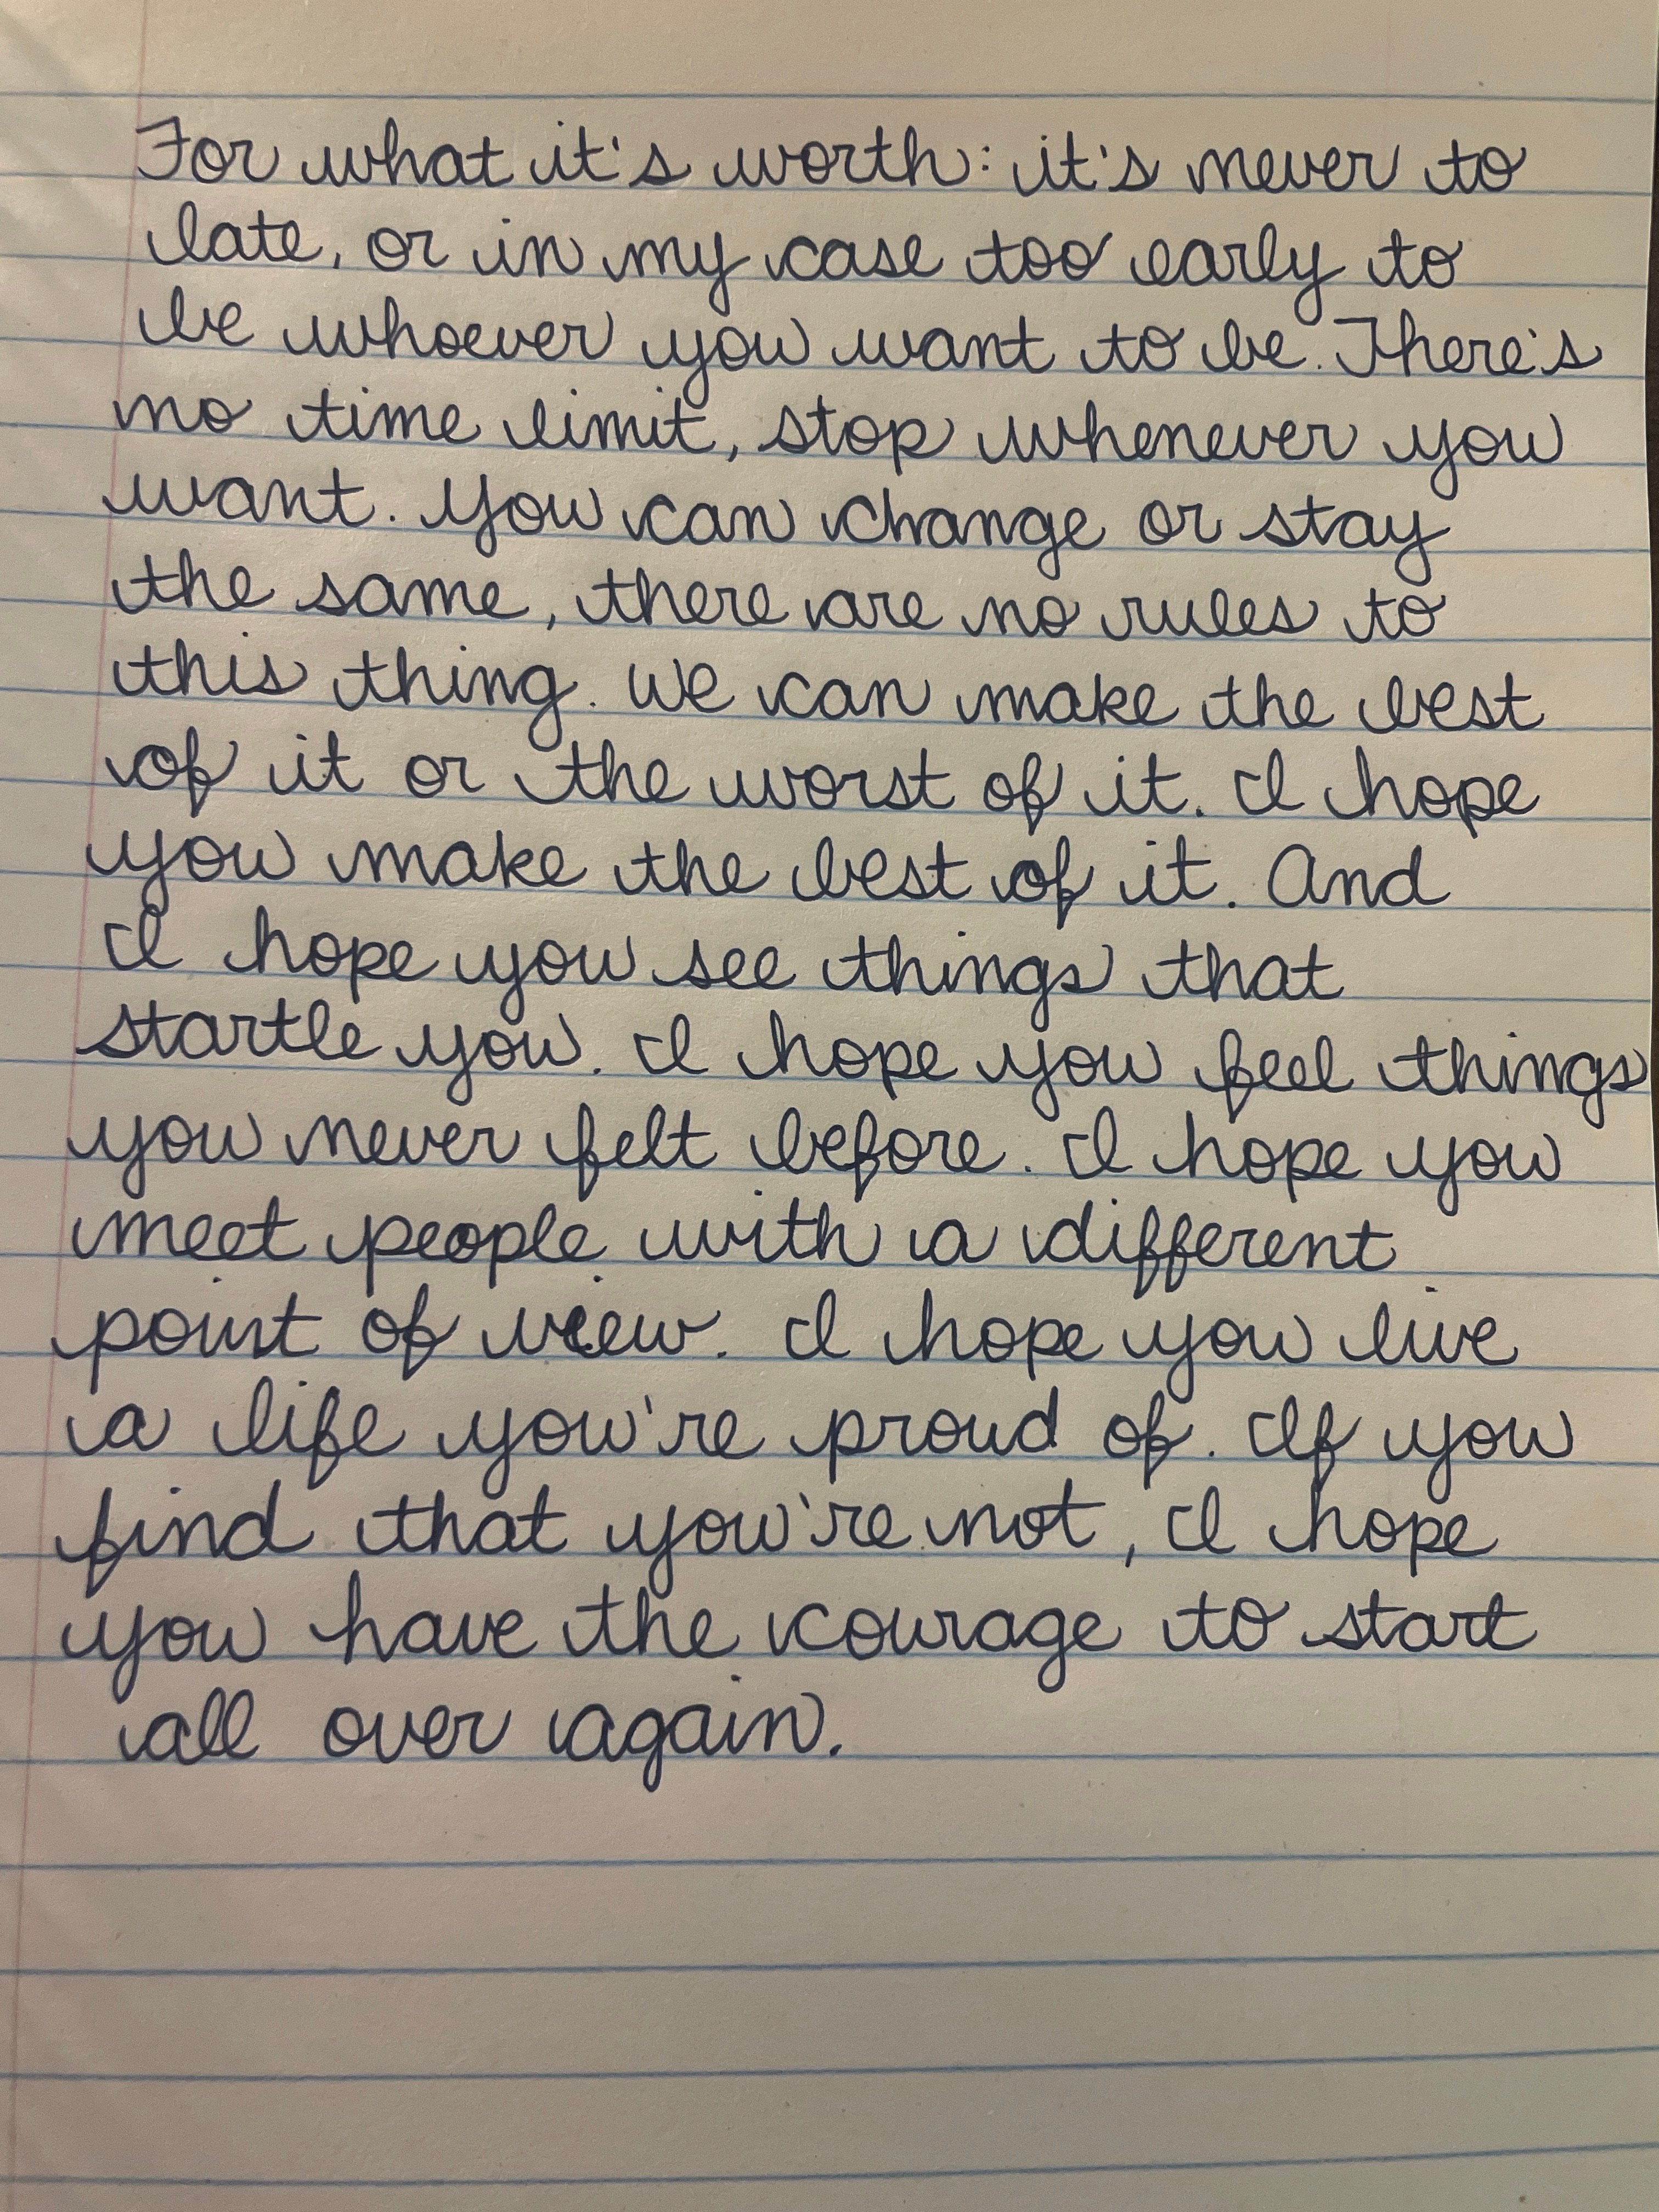 For what it's worth: it's never to
late, or in my case too early to
be whoever you want to be. There's
no time limit, stop whenever you
want. You can change or stay
the same, there are no rules to
this thing. We can make the best
of it or the worst of it. I hope
you make the best of it. And
I hope you see things that
startle you. I hope you feel things
you never felt before. I hope you
meet people with a different
point of view. I hope you live
a life you're proud of. If you
find that you're not, I hope
you have the courage to start
all over again.